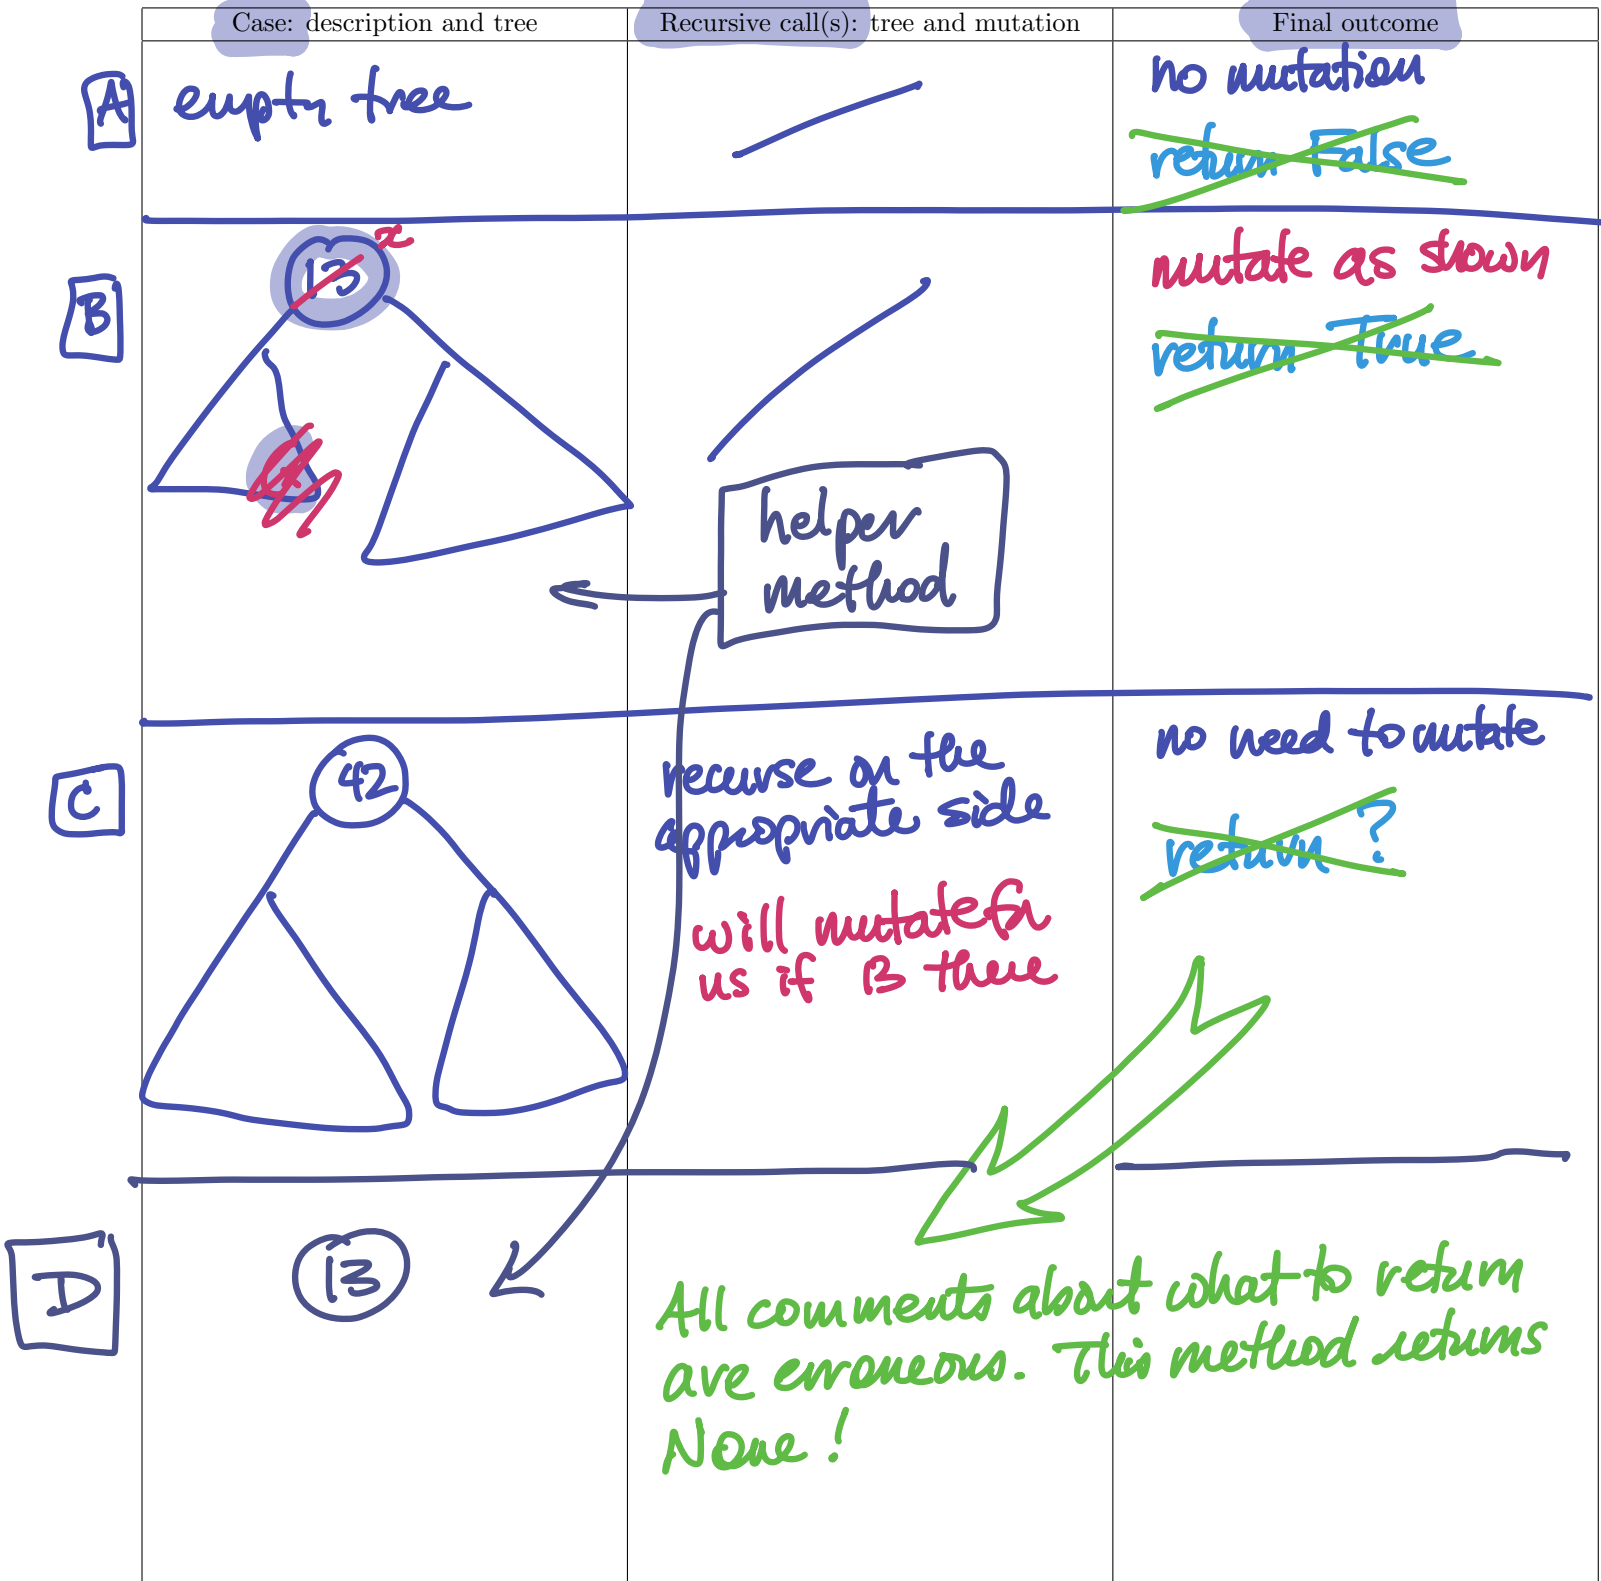 Case: description and tree
Recursive call(s): tree and mutation
Final outcome
A
empty tree
no mutation
return False
B
13
x
x
mutate as shown
return True
helper
method
C
42
recurse on the
appropriate side
will mutate for
us if 13 there
no need to mutate
return ?
D
13
All comments about what to return
are erroneous. This method returns
None!